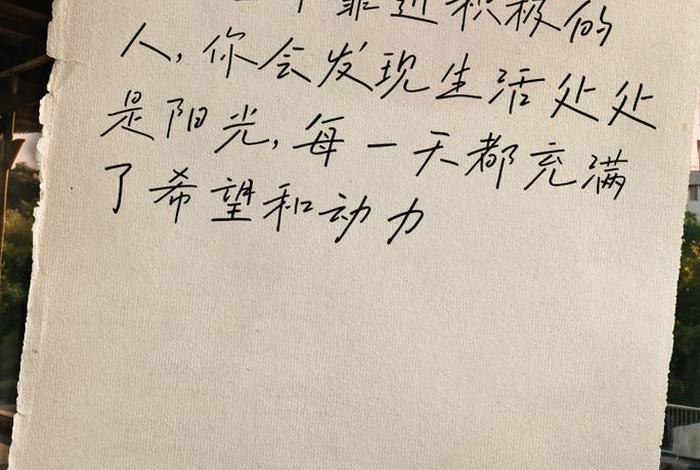 靠近积极的
人,你会发现生活处处
是阳光,每一天都充满
了希望和动力